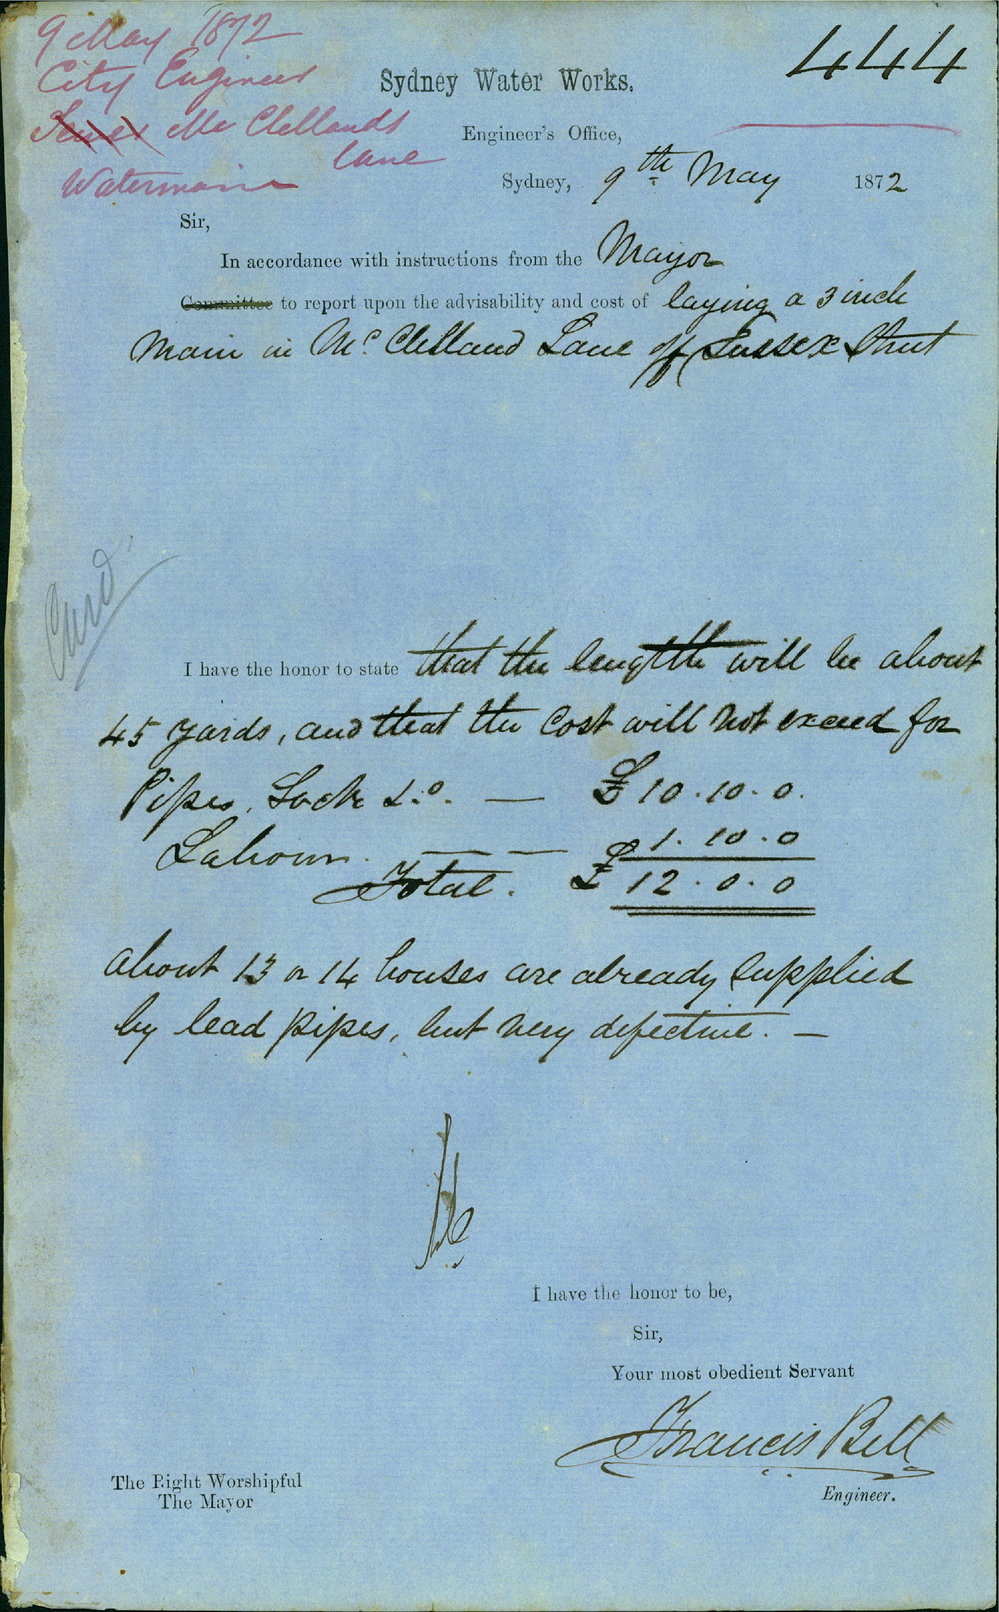 9 May 1872
City Engineer
McClellands
lane
Watermain
444
Sydney Water Works.
Engineer's Office,
Sydney, 9th May 1872
Sir,
In accordance with instructions from the Mayor
Committee to report upon the advisability and cost of laying a 3 inch
main in Mc. Clelland Lane off Sussex Street
I have the honor to state that the length will be about
45 yards, and that the cost will not exceed for
Pipes, Lock &c. — £10.10.0.
Labour. — — 1.10.0
Total. £12.0.0
about 13 or 14 houses are already supplied
by lead pipes, but very defective. —
I have the honor to be,
Sir,
Your most obedient Servant
Francis Bell
Engineer.
The Right Worshipful
The Mayor